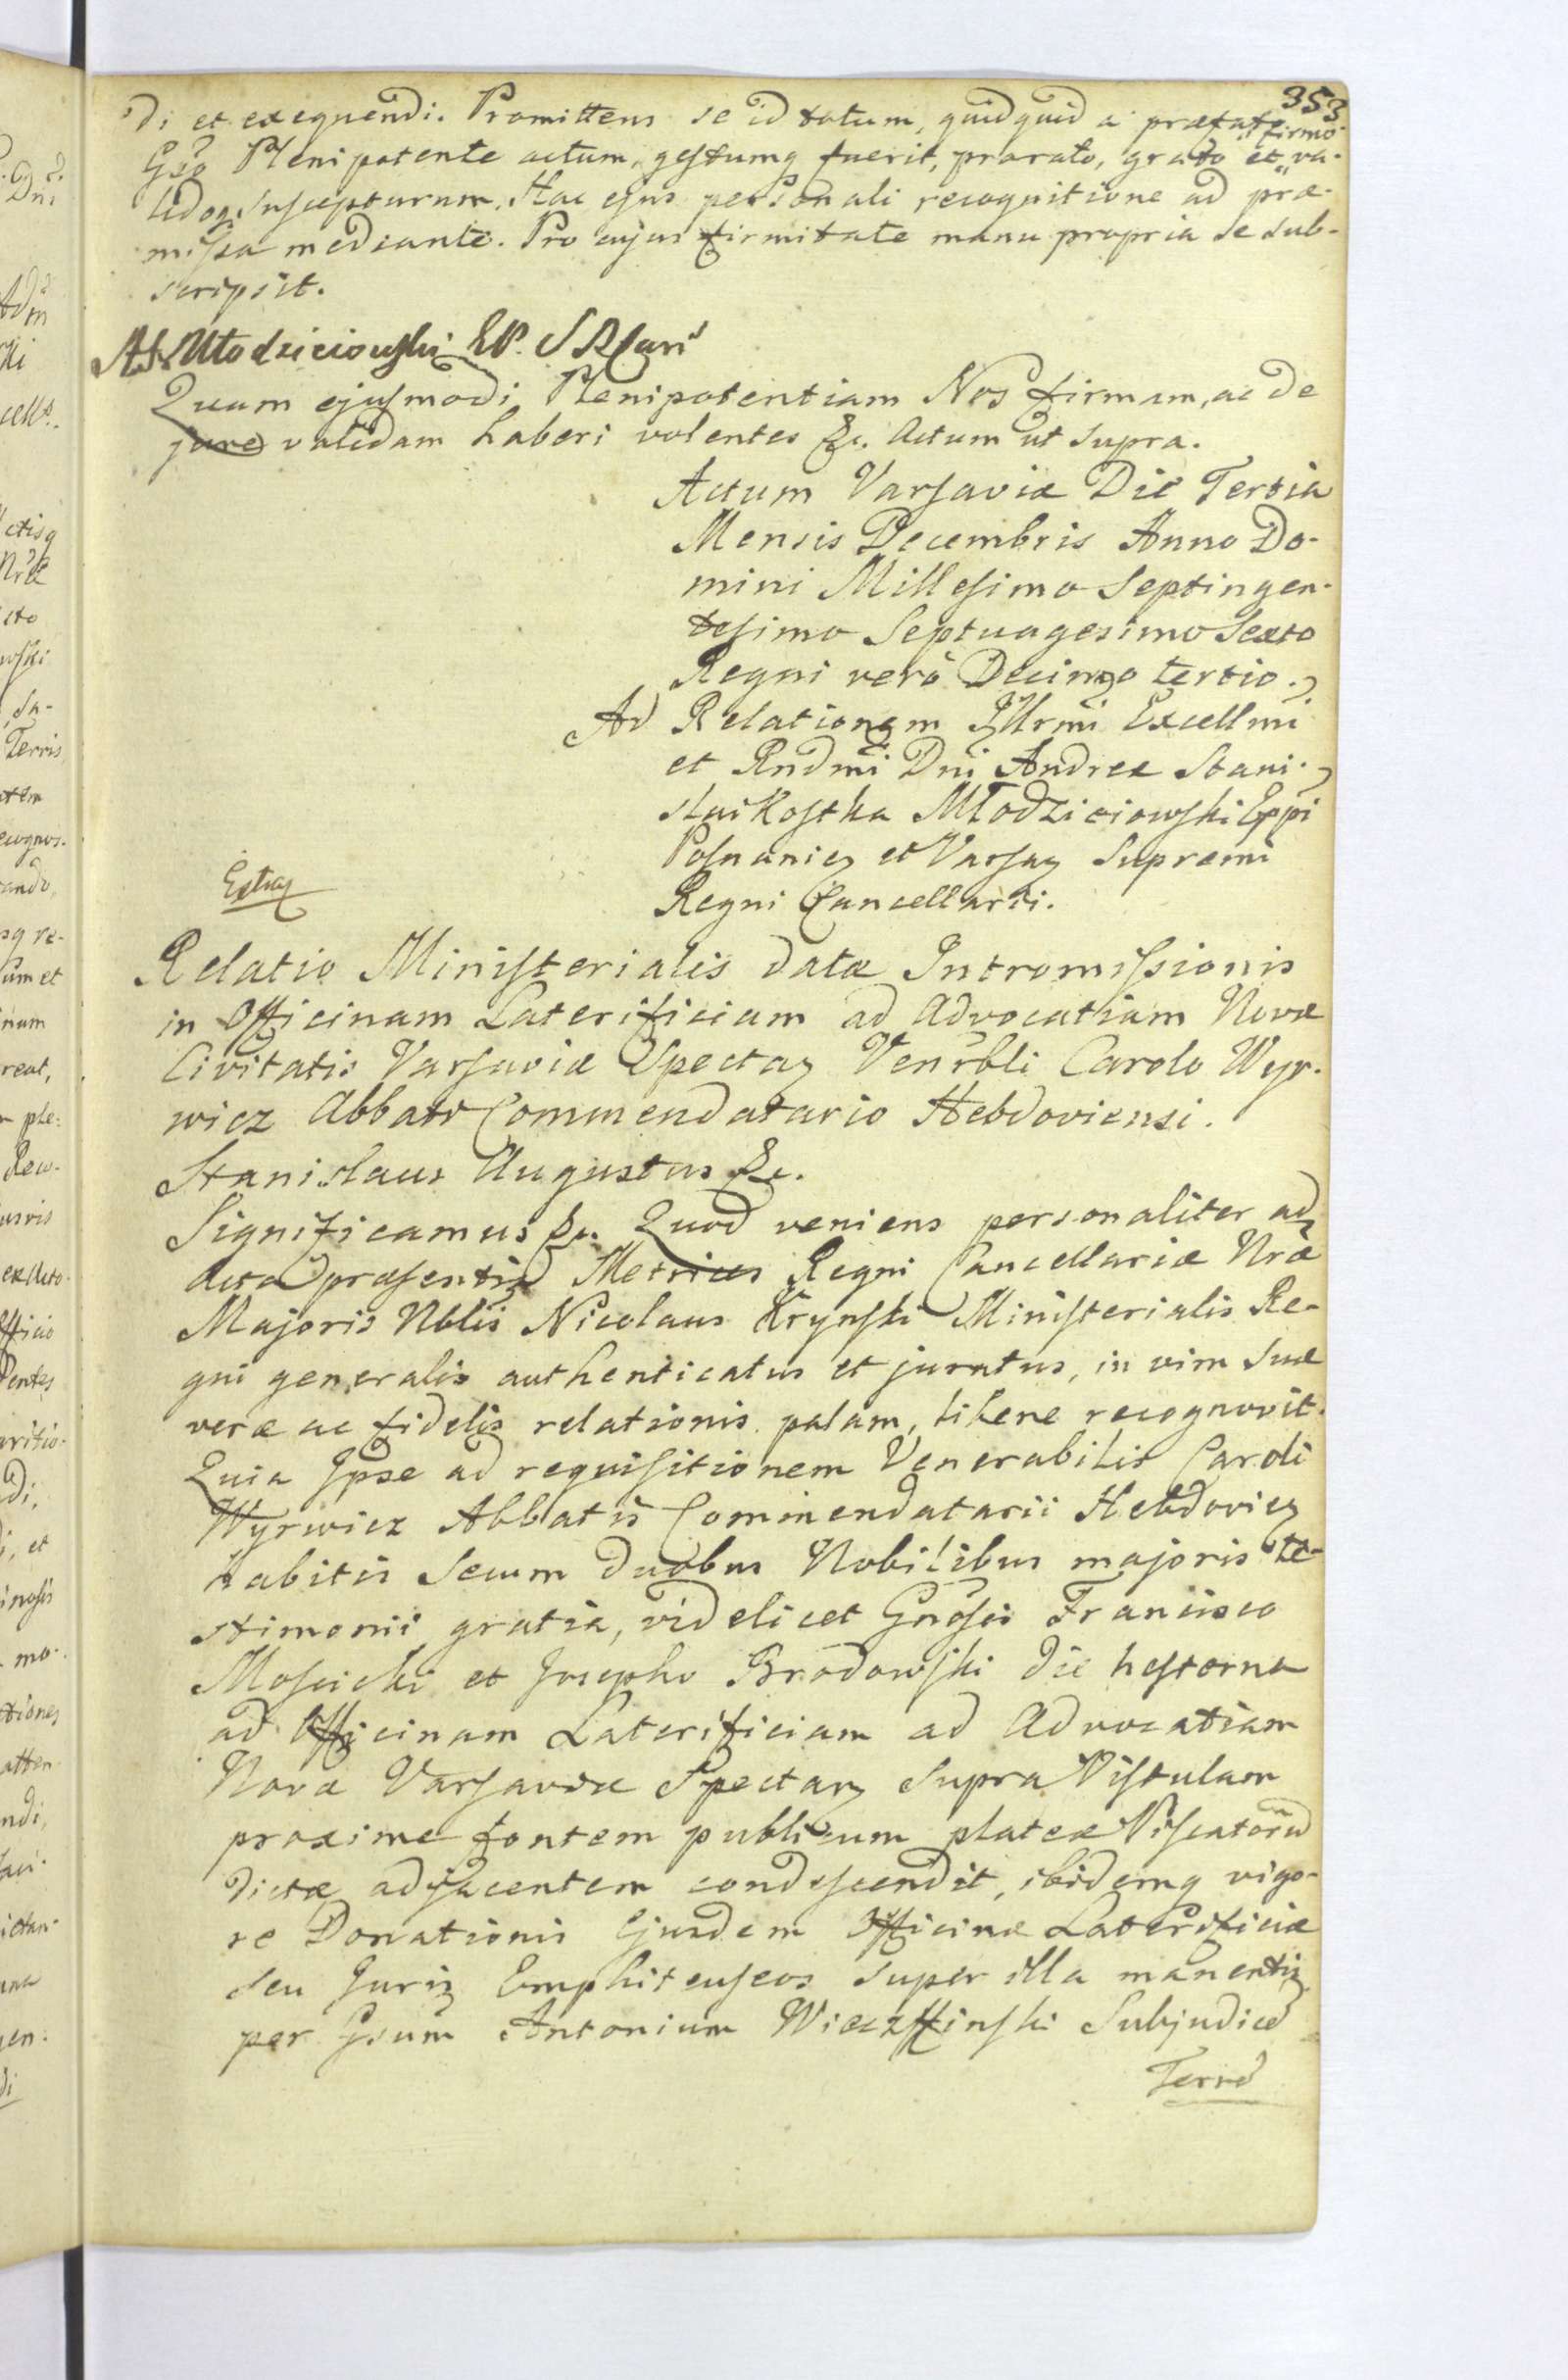 353
di et exequendi. Promittens se id totum, quidquid a præfato
Gso Plenipotente actum, gestumq fuerit, pro rato, grato firmo et va-
lidoq suscepturum. Hac ejus personali recognitione ad præ-
missa mediante. Pro cujus firmitate manu propria se sub-
scripsit.
Młodzieiowski EP.
Quam ejusmodi Plenipotentiam Nos firmam, ac de
jure validam haberi volentes &c. Actum ut supra.
Actum Varsaviæ Die Tertia
Mensis Decembris Anno Do-
mini Millesimo Septingen-
tesimo Septuagesimo Sexto
Regni verò Decimo tertio.
Ad Relationem Illrmi Excellmi
et Rndmi Dni Andreæ Stani-
slai Kostka Młodzieiowski Eppi
Posnanien et Varsav Supremi
Regni Cancellarii.
Relatio Ministerialis datæ Intromissionis
in Officinam Laterificiam ad Advocatiam Novæ
Civitatis Varsaviæ Spectan Venrbli Carolo Wyr-
wicz Abbati Commendatario Hebdoviensi.
Stanislaus Augustus &c.
Significamus &c. Quod veniens personaliter ad
Acta præsentia Metrices Regni Cancellariæ Nræ
Majoris Nblis Nicolaus Krynski Ministerialis Re-
gni generalis authenticatus et juratus, in vim suæ
veræ ac fidelis relationis palam, libere recognovit.
Quia Ipse ad requisitionem Venerabilis Caroli
Wyrwicz Abbatis Commendatarii Hebdovien
habitis secum duobus Nobilibus majoris te-
stimonii gratia, videlicet Gnosis Francisco
Moscicki et Josepho Brodowski die hesterna
ad Officinam Laterificiam ad Advocatiam
Novæ Varsaviæ Spectan supra Vistulam
proxime fontem publicum plateæ Piscatoru
dictæ adjacentem condescendit, ibidemq vigo-
re Donationis Ejusdem Officinæ Laterificiæ
seu Juris Emphiteuseos super illa manentis
per Gsum Antonium Subjudice
Terre